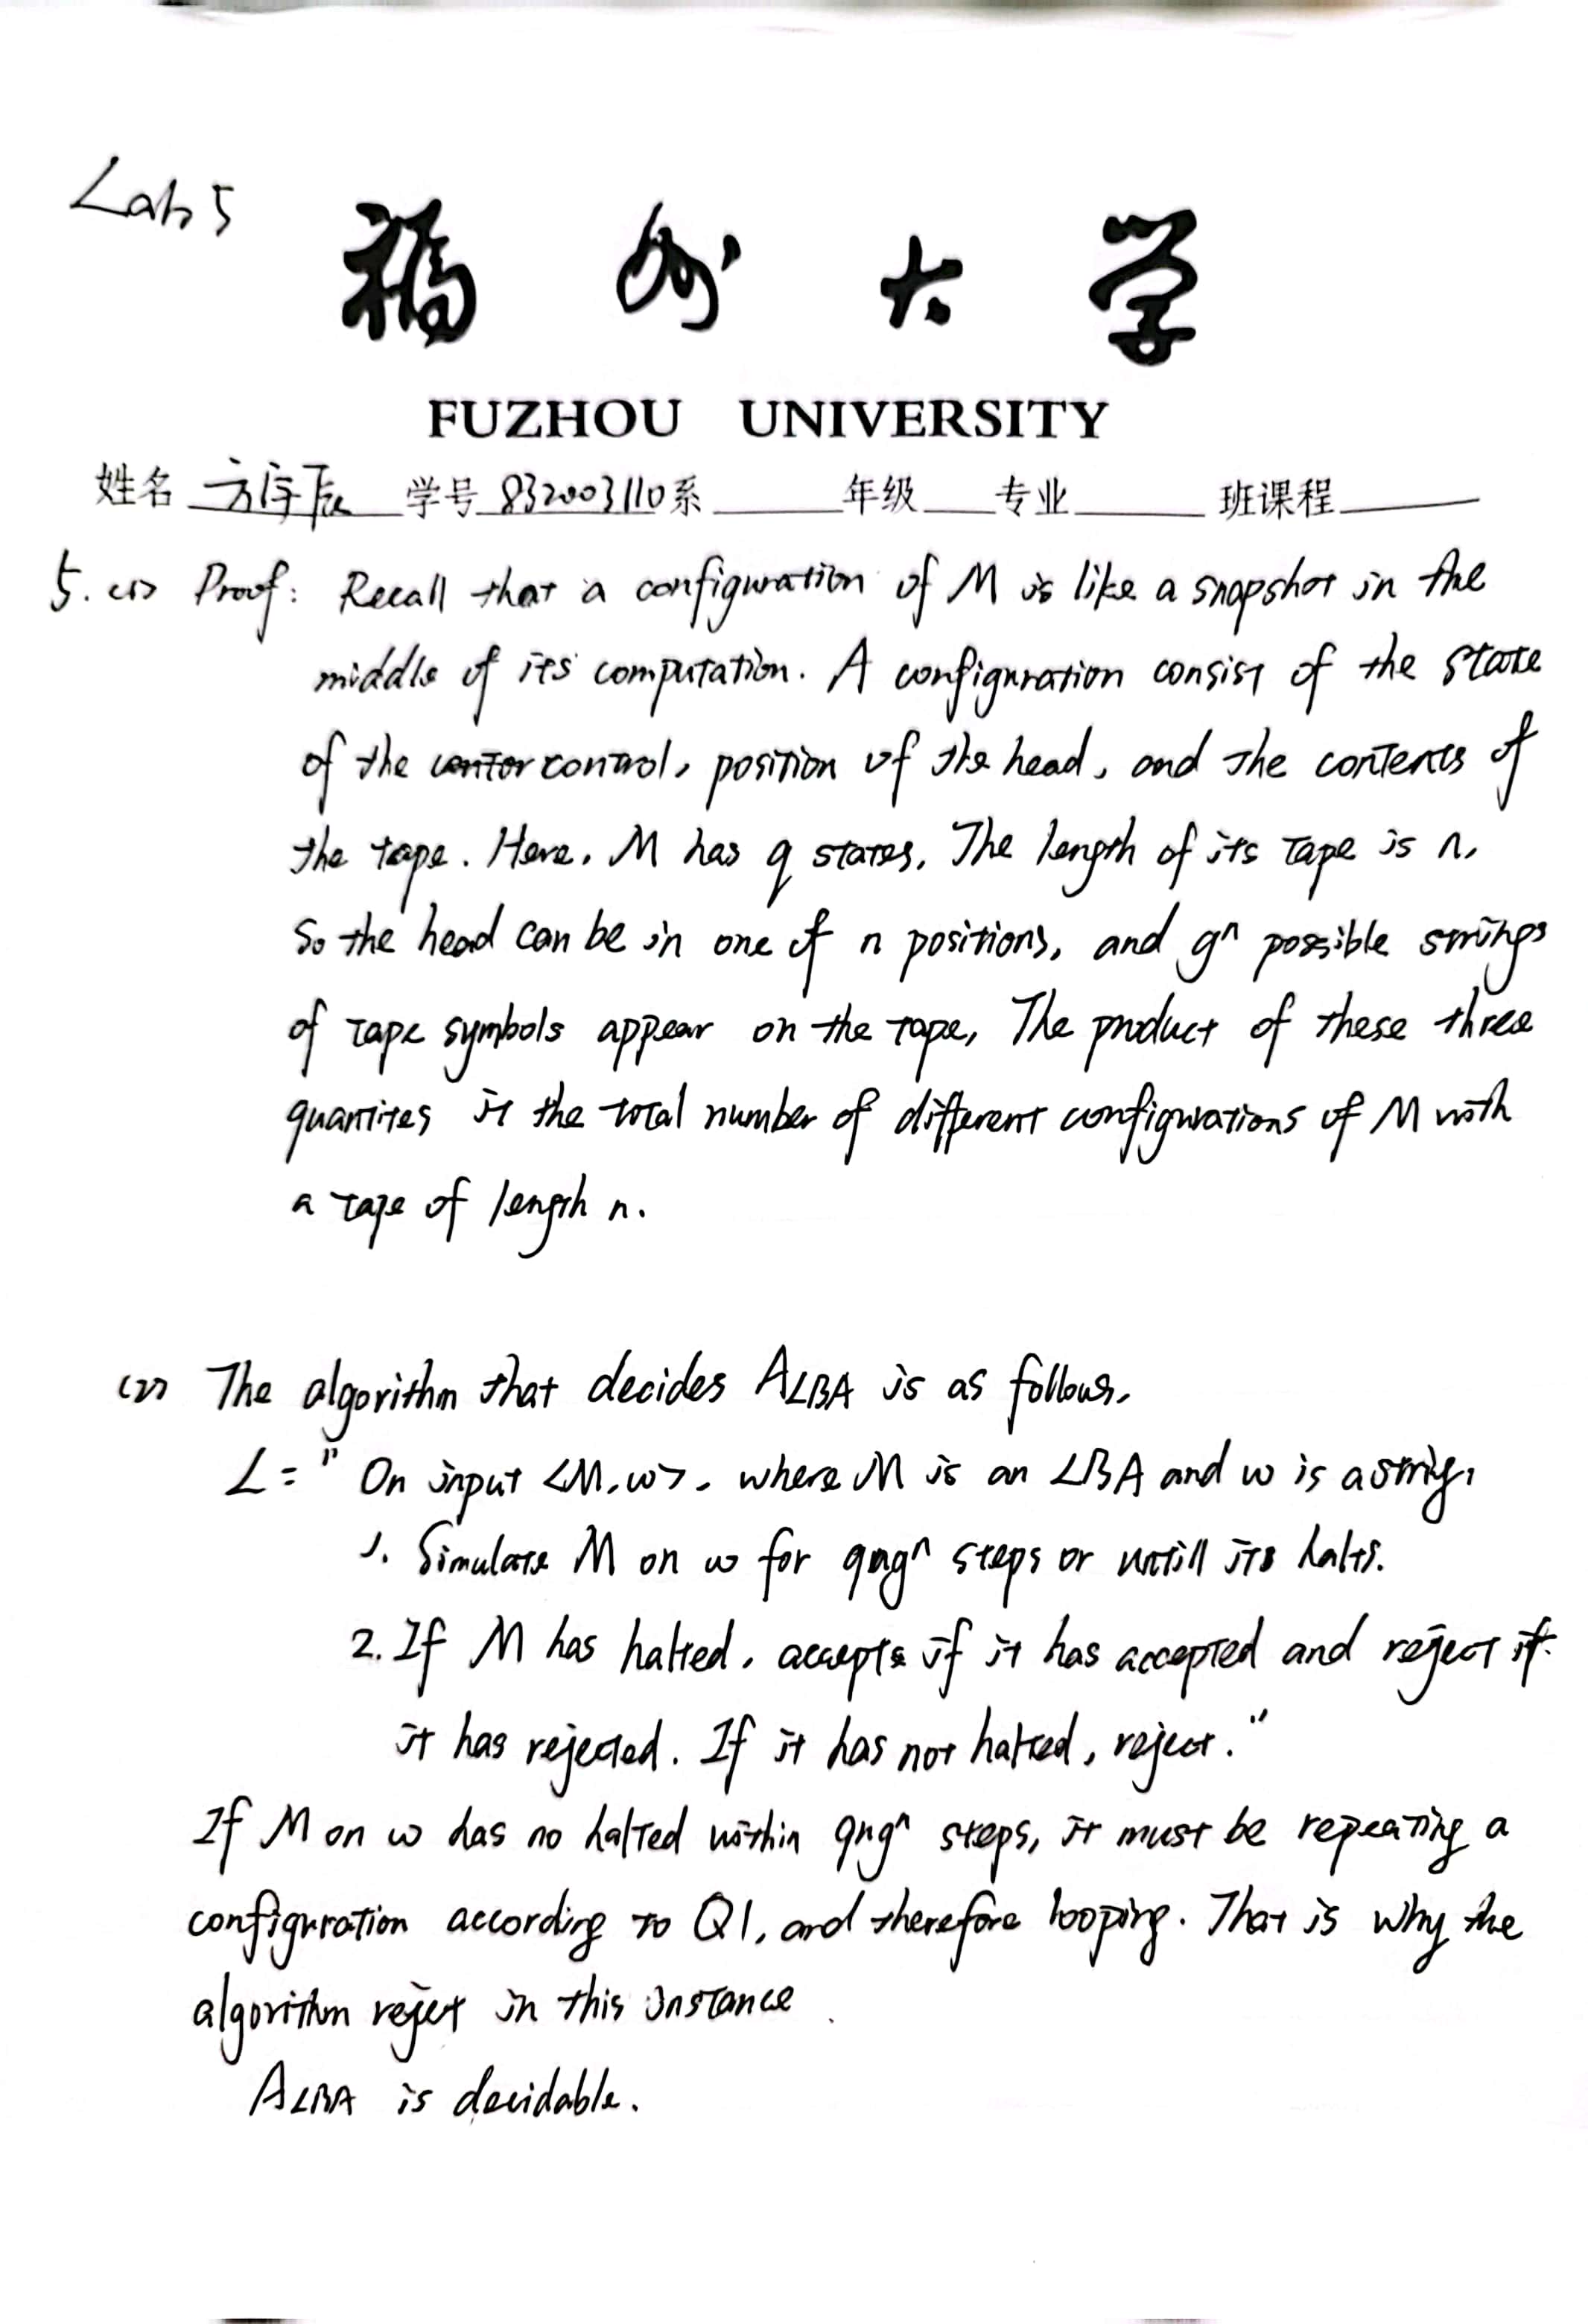 Lab 5
福州大学
FUZHOU UNIVERSITY
姓名 学号 832003110 系 年级 专业 班课程
5. (1) Proof: Recall that a configuration of M is like a snapshot in the
middle of its computation. A configuration consist of the state
of the control, position of the head, and the contents of
the tape. Here, M has q states, The length of its tape is n,
So the head can be in one of n positions, and gⁿ possible strings
of tape symbols appear on the tape, The product of these three
quantites is the total number of different configurations of M with
a tape of length n.
(2) The algorithm that decides A_LBA is as follows.
L = " On input <M, w>, where M is an LBA and w is a string,
1. Simulate M on w for qngⁿ steps or untill its halts.
2. If M has halted, accepts if it has accepted and reject if
it has rejected. If it has not halted, reject."
If M on w has no halted within qngⁿ steps, it must be repeating a
configuration according to Q1, and therefore looping. That is why the
algorithm reject in this instance.
A_LBA is decidable.